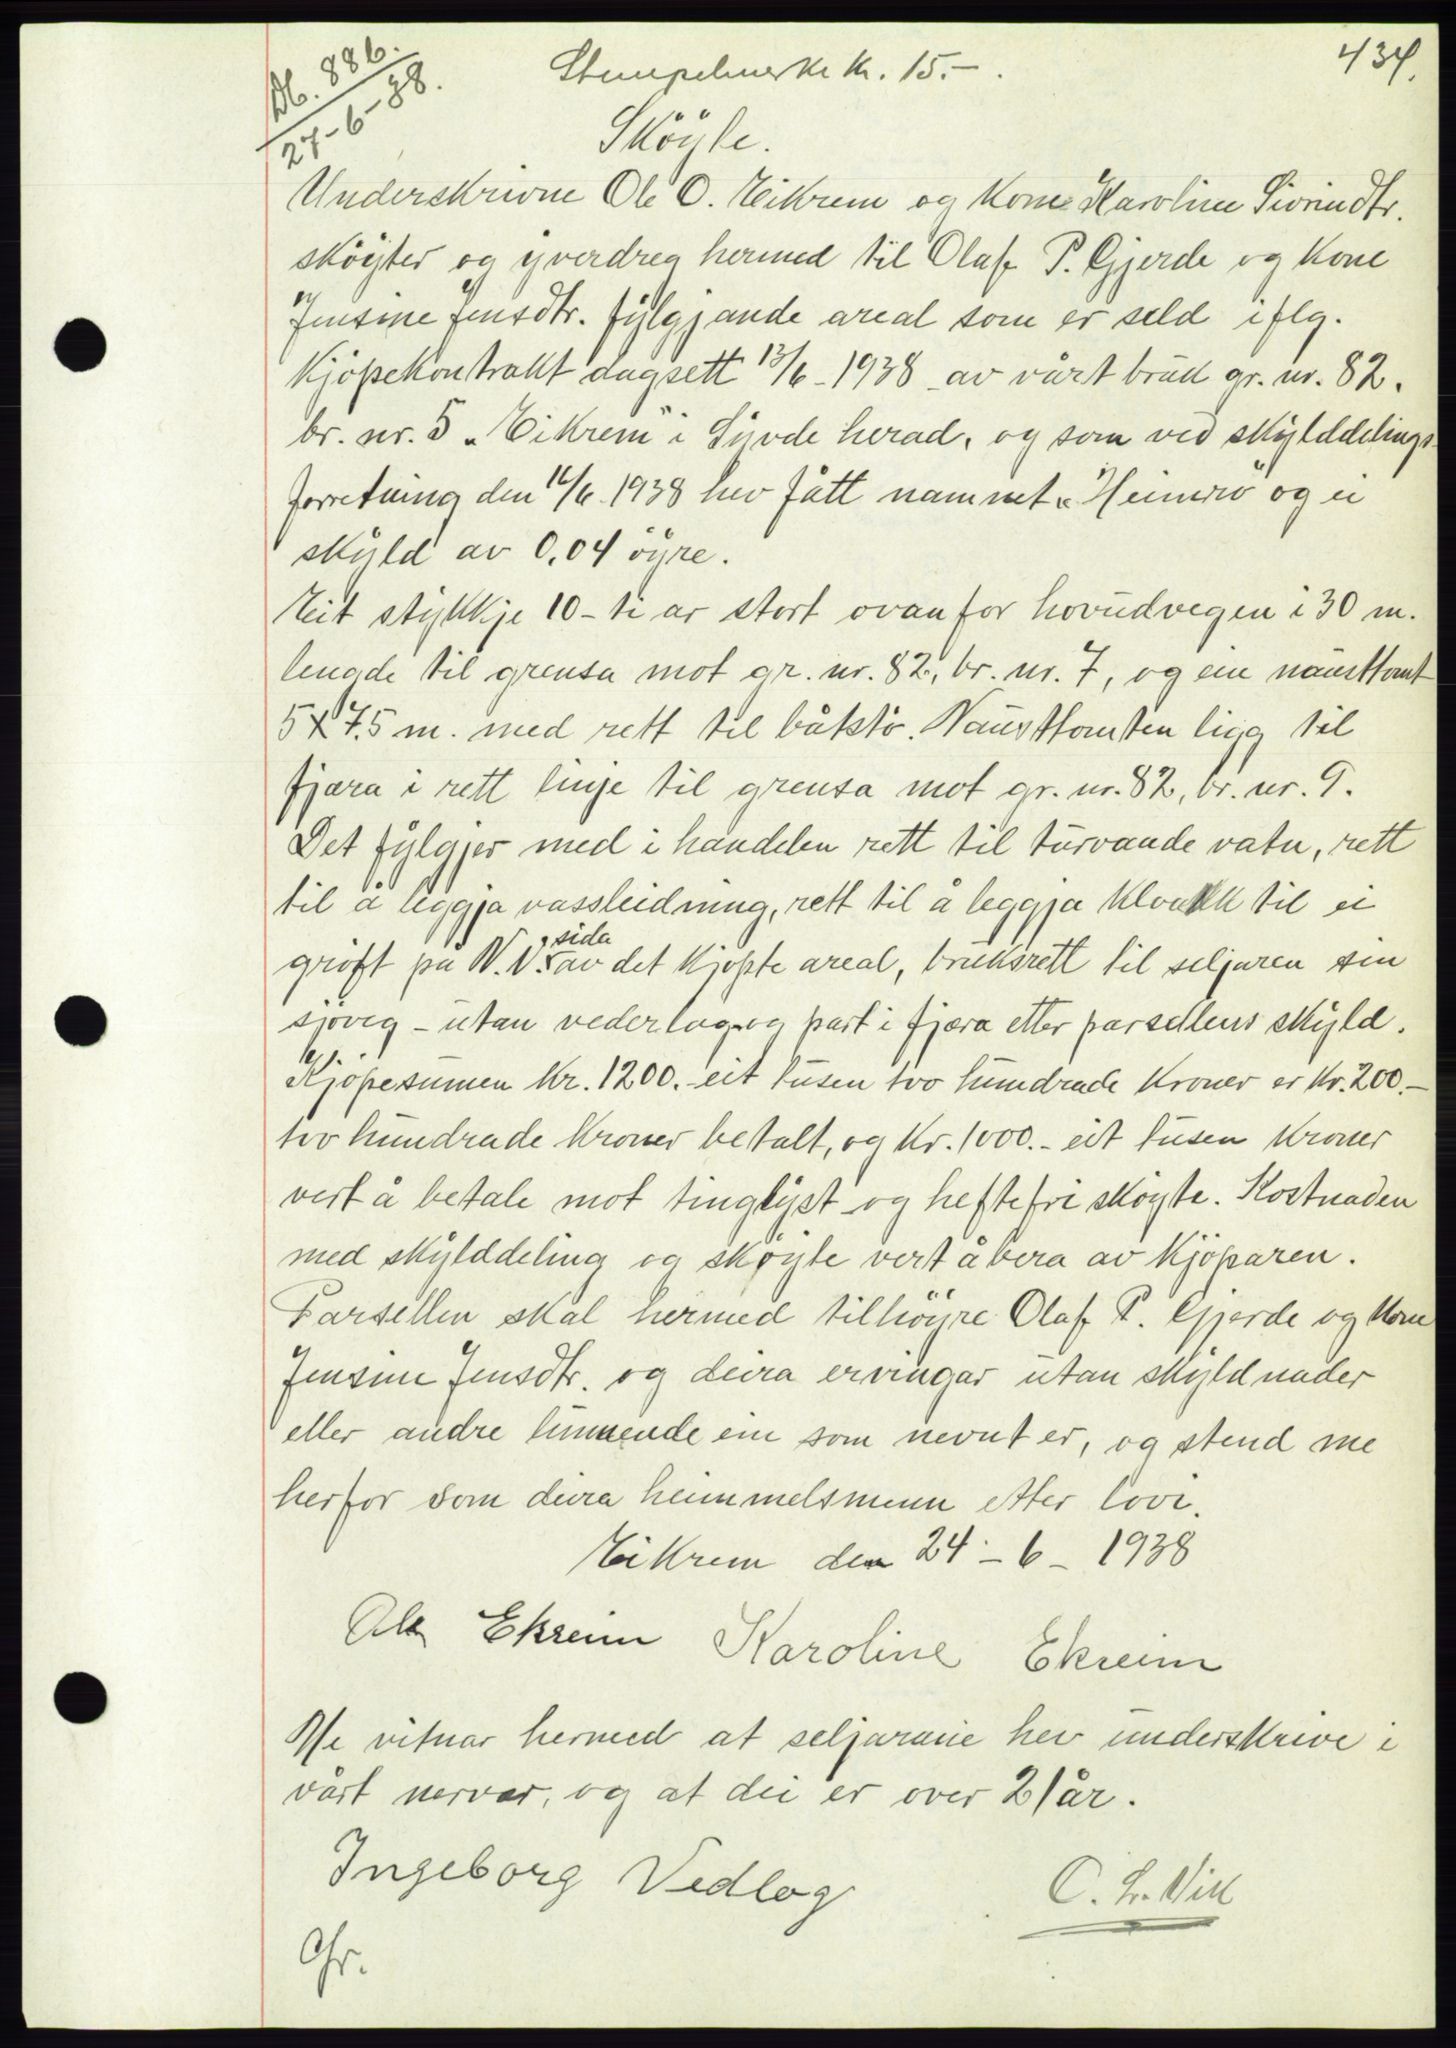 Db. 886.
27-6-38.
Stempelmerke kr. 15.-.
434.
Sköyte.
Underskrivne Ole O. Eikrem og kone Karoline Sivrindtr.
sköyter og yverdreg hermed til Olaf P. Gjerde og kone
Jensine Jensdtr. fylgjande areal som er seld iflg.
kjöpekontrakt dagsett 13/6-1938 av vårt bruk gr. nr. 82.
br. nr. 5 "Eikrem" i Syvde herad, og som ved skylddelings-
forretning den 16/6 1938 hev fått namnet "Heimro" og ei
skyld av 0,04 öyre.
Eit stykkje 10-ti ar stort ovanfor hovudvegen i 30 m.
lengde til grensa mot gr. nr. 82, br. nr. 7, og ein nausttomt
5 x 7.5 m. med rett til båtstö. Nausttomten ligg til
fjæra i rett linje til grensa mot gr. nr. 82, br. nr. 9.
Det fylgjer med i handelen rett til turvande vatn, rett
til å leggja vassleidning, rett til å leggja kloakk til ei
gröft på N.V. sida av det kjöpte areal, bruksrett til seljaren sin
sjöveg - utan vederlag og part i fjæra etter parsellens skyld.
Kjöpesumen kr. 1200.- eit tusen tvo hundrade kroner er kr. 200.-
tvo hundrade kroner betalt, og kr. 1000.- eit tusen kroner
vert å betale mot tinglyst og heftefri sköyte. Kostnaden
med skylddeling og sköyte vert å bera av kjöparen.
Parsellen skal hermed tilhöyre Olaf P. Gjerde og kone
Jensine Jensdtr. og deira ervingar utan skyldnader
eller andre lunnende ein som nevnt er, og stend me
herfor som deira heimmelsmenn etter lovi.
Eikrem den 24-6-1938
Ole Ekreim Karoline Ekreim
Me vitnar hermed at seljarane hev underskrive i
vårt nervær, og at dei er over 21 år.
Ingeborg Vedlog
C. L. Vik
Gr.